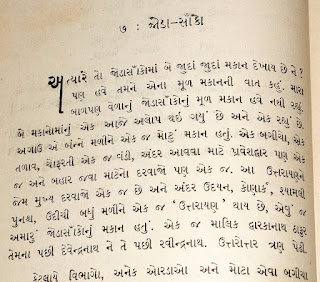 ૭ : જોડા-સાંકો
અત્યારે તો જોડાસાંકોમાં બે જુદાં જુદાં મકાન દેખાય છે ને ?
પણ હવે તમને એના મૂળ મકાનની વાત કહું. મારા
બાળપણ વેળાનું જોડાસાંકોનું મૂળ મકાન હવે નથી રહ્યું.
બે મકાનોમાંનું એક આજે અલોપ થઈ ગયું છે અને એક રહ્યું છે.
અગાઉ એ બન્ને મળીને એક જ મોટું મકાન હતું. એક બગીચો, એક
તળાવ, ચોફરતી એક જ વંડી, અંદર આવવા માટે પ્રવેશદ્વાર પણ એક
જ અને બહાર જવા માટેનો દરવાજો પણ એક જ. આ ઉત્તરાયણને
જેમ મુખ્ય દરવાજો એક જ છે અને અંદર ઉદયન, કોણાર્ક, શ્યામલી
પુનશ્ચ, ઉદીચી બધું મળીને એક જ ‘ઉત્તરાયણ’ થાય છે, એવું જ
અમારું જોડાસાંકોનું મકાન હતું. એક જ માલિક દ્વારકાનાથ ઠાકુર
તેમના પછી દેવેન્દ્રનાથ ને તે પછી રવીન્દ્રનાથ. ઉત્તરોત્તર ત્રણ પેઢી.
કેટલાયે વિભાગો, અનેક ઓરડાઓ અને મોટા એવા બગીચા